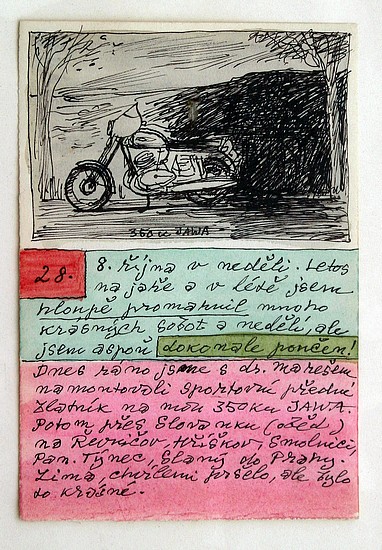 350cc JAWA
28.
8. října v neděli. Letos
na jaře a v létě jsem
hloupě promarnil mnoho
krásných sobot a neděli, ale
jsem aspoň dokonale poučen!
Dnes ráno jsme s dr. Marešem
namontovali sportovní přední
blatník na mou 350ku JAWA.
Potom přes Slovanku (oběd)
na Řevničov, Hříškov, Smolnici,
Pan. Týnec, Slaný do Prahy.
Zima, chvílemi pršelo, ale bylo
to krásné.